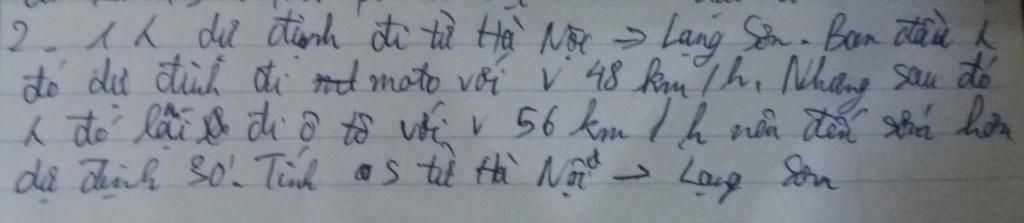 2. 1 λ dự định đi từ Hà Nội → Lạng Sơn. Ban đầu λ
đó dự định đi moto với v 48 km/h. Nhưng sau đó
λ đó lại đi ô tô với v 56 km/h nên đến sớm hơn
dự định 30'. Tính s từ Hà Nội → Lạng Sơn